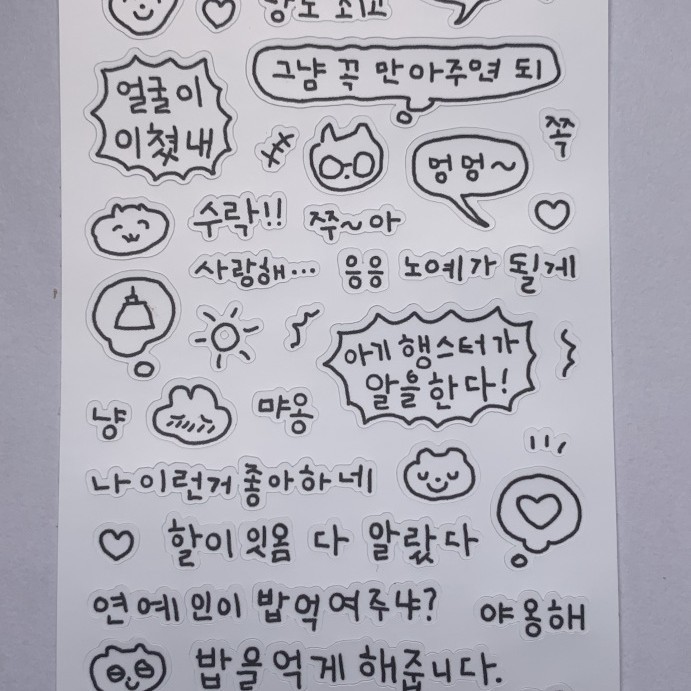 그냥 꼭 만아주면 되
얼굴이
이쳤내
쪽
멍멍~
수락!!
쮸~아
사랑해...
응응
노예가 될게
아기 햄스터가
알을 한다!
냥
먀옹
나 이런거 좋아하네
할이 잇옴 다 알랐다
연예인이 밥먹여주냐?
야옹해
밥을 먹게 해줍니다.